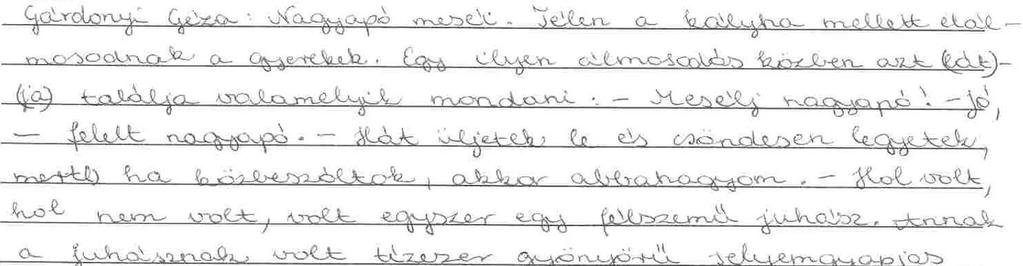 Gárdonyi Géza: Nagyapó meséi. Télen a kályha mellett elál-
mosodnak a gyerekek. Egy ilyen álmosodás közben azt (lát)-
(ja) találja valamelyik mondani: - Mesélj nagyapó! - Jó,
- felelt nagyapó. - Hát üljetek le és csöndesen legyetek,
mert() ha közbeszóltok, akkor abbahagyom. - Hol volt,
hol nem volt, volt egyszer egy félszemű juhász. Annak
a juhásznak volt tízezer gyönyörű selyemgyapjas